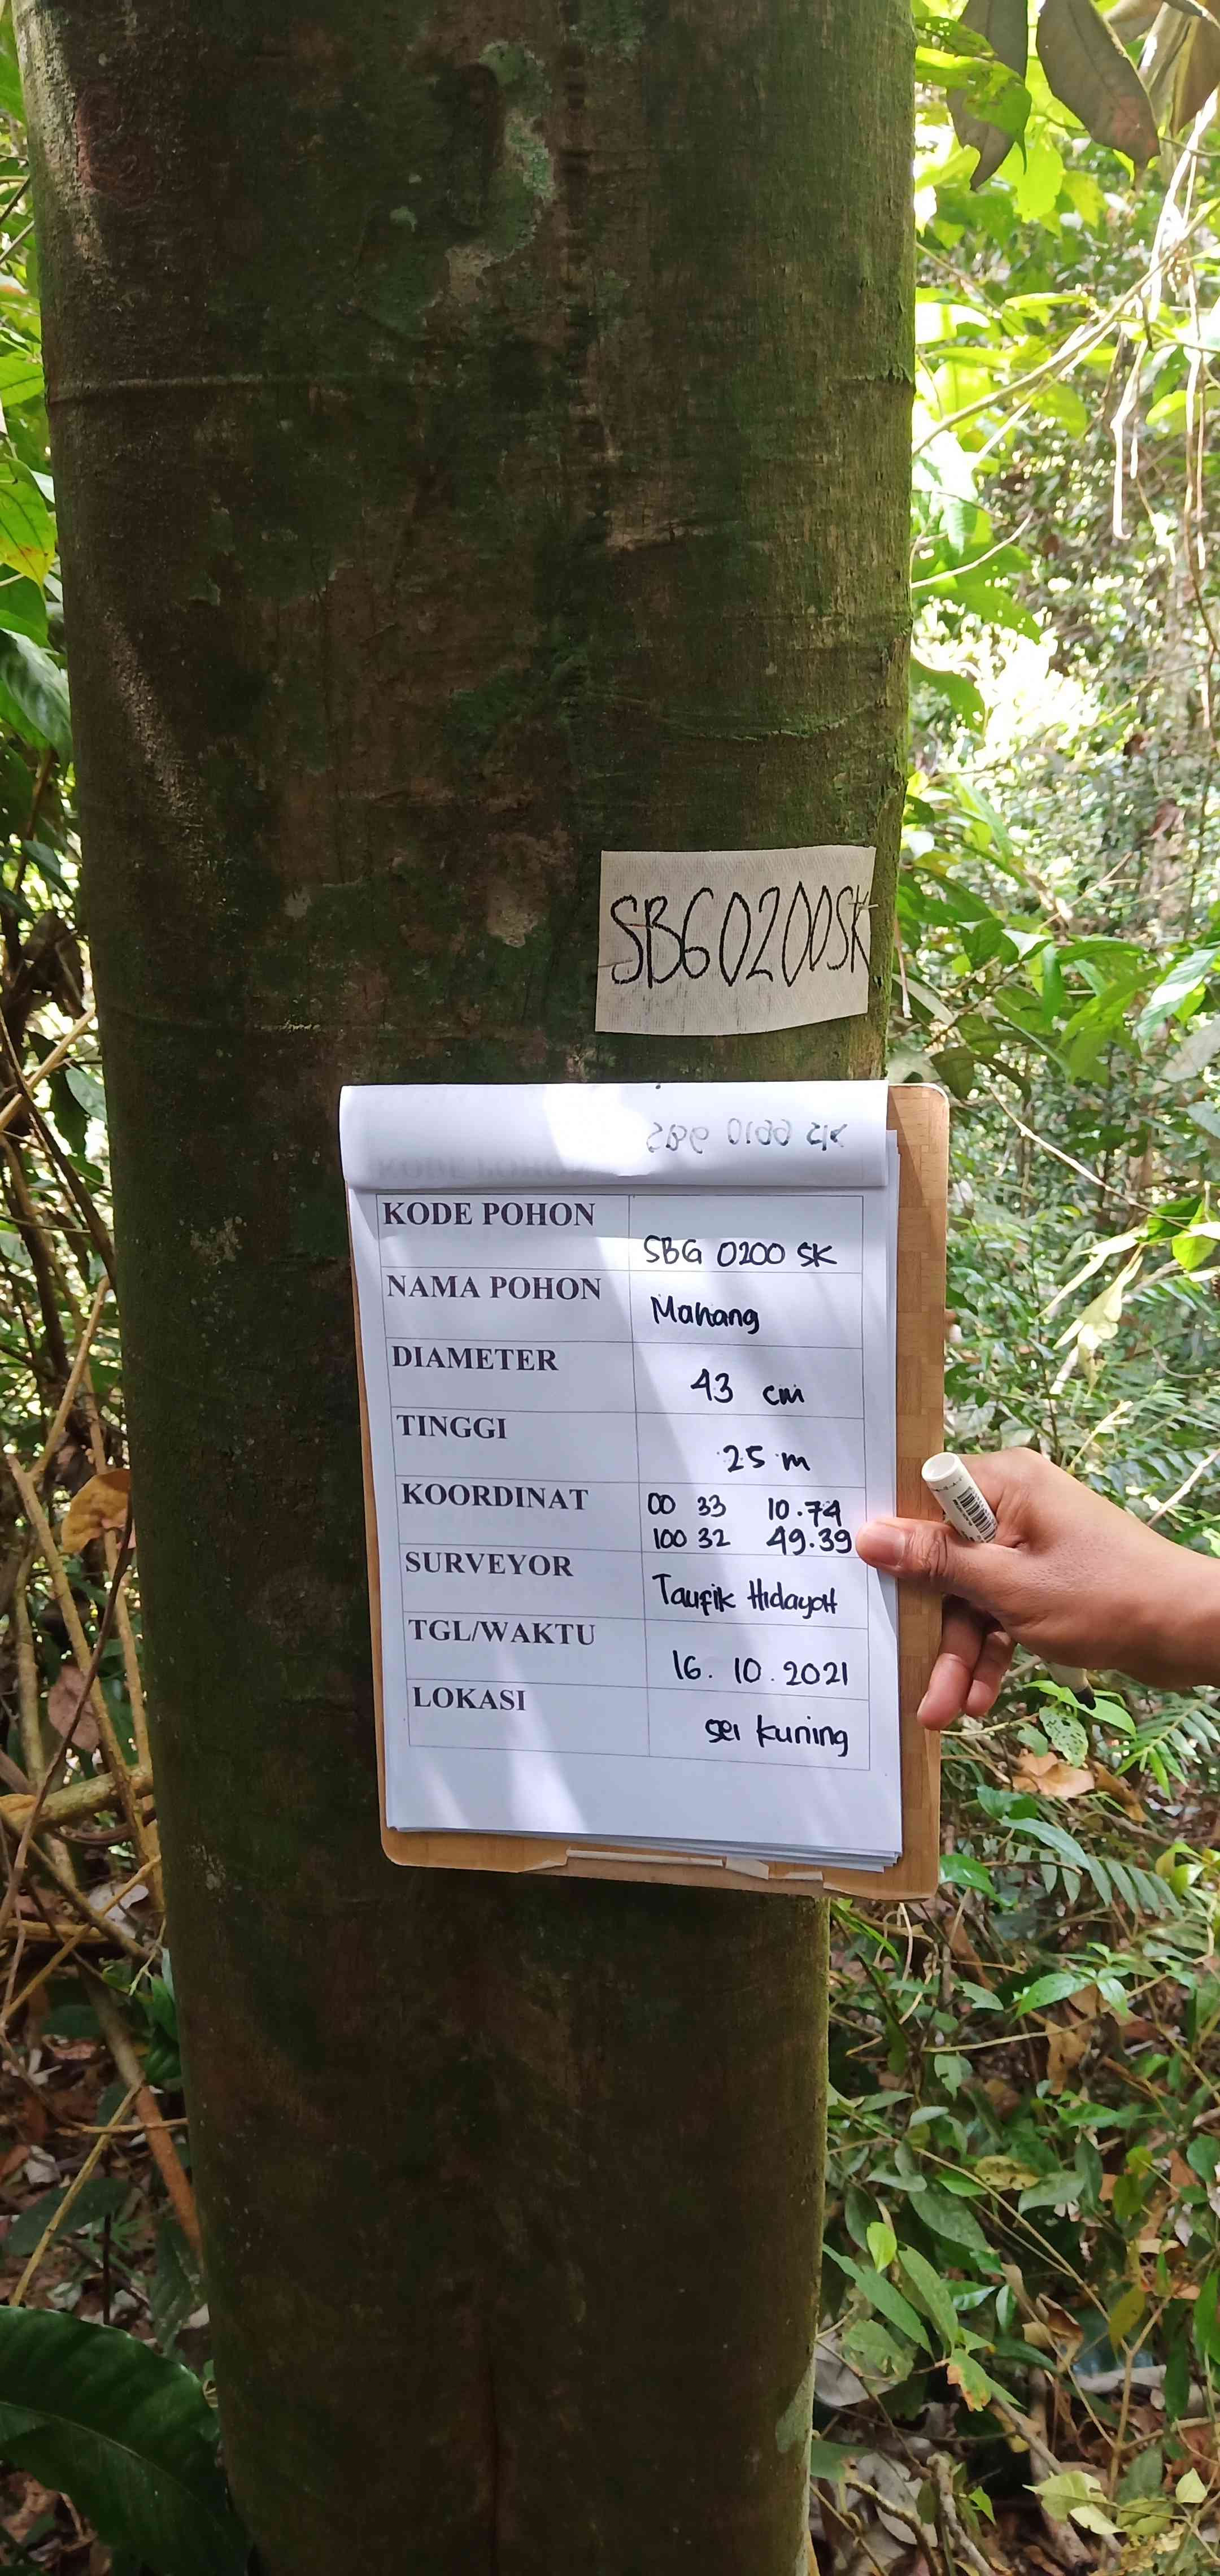 SBG0200SK
KODE POHON
SBG 0200 SK
NAMA POHON
Mahang
DIAMETER
43 cm
TINGGI
25 m
KOORDINAT
00 33 10.74
100 32 49.39
SURVEYOR
Taufik Hidayat
TGL/WAKTU
16. 10. 2021
LOKASI
sei kuning